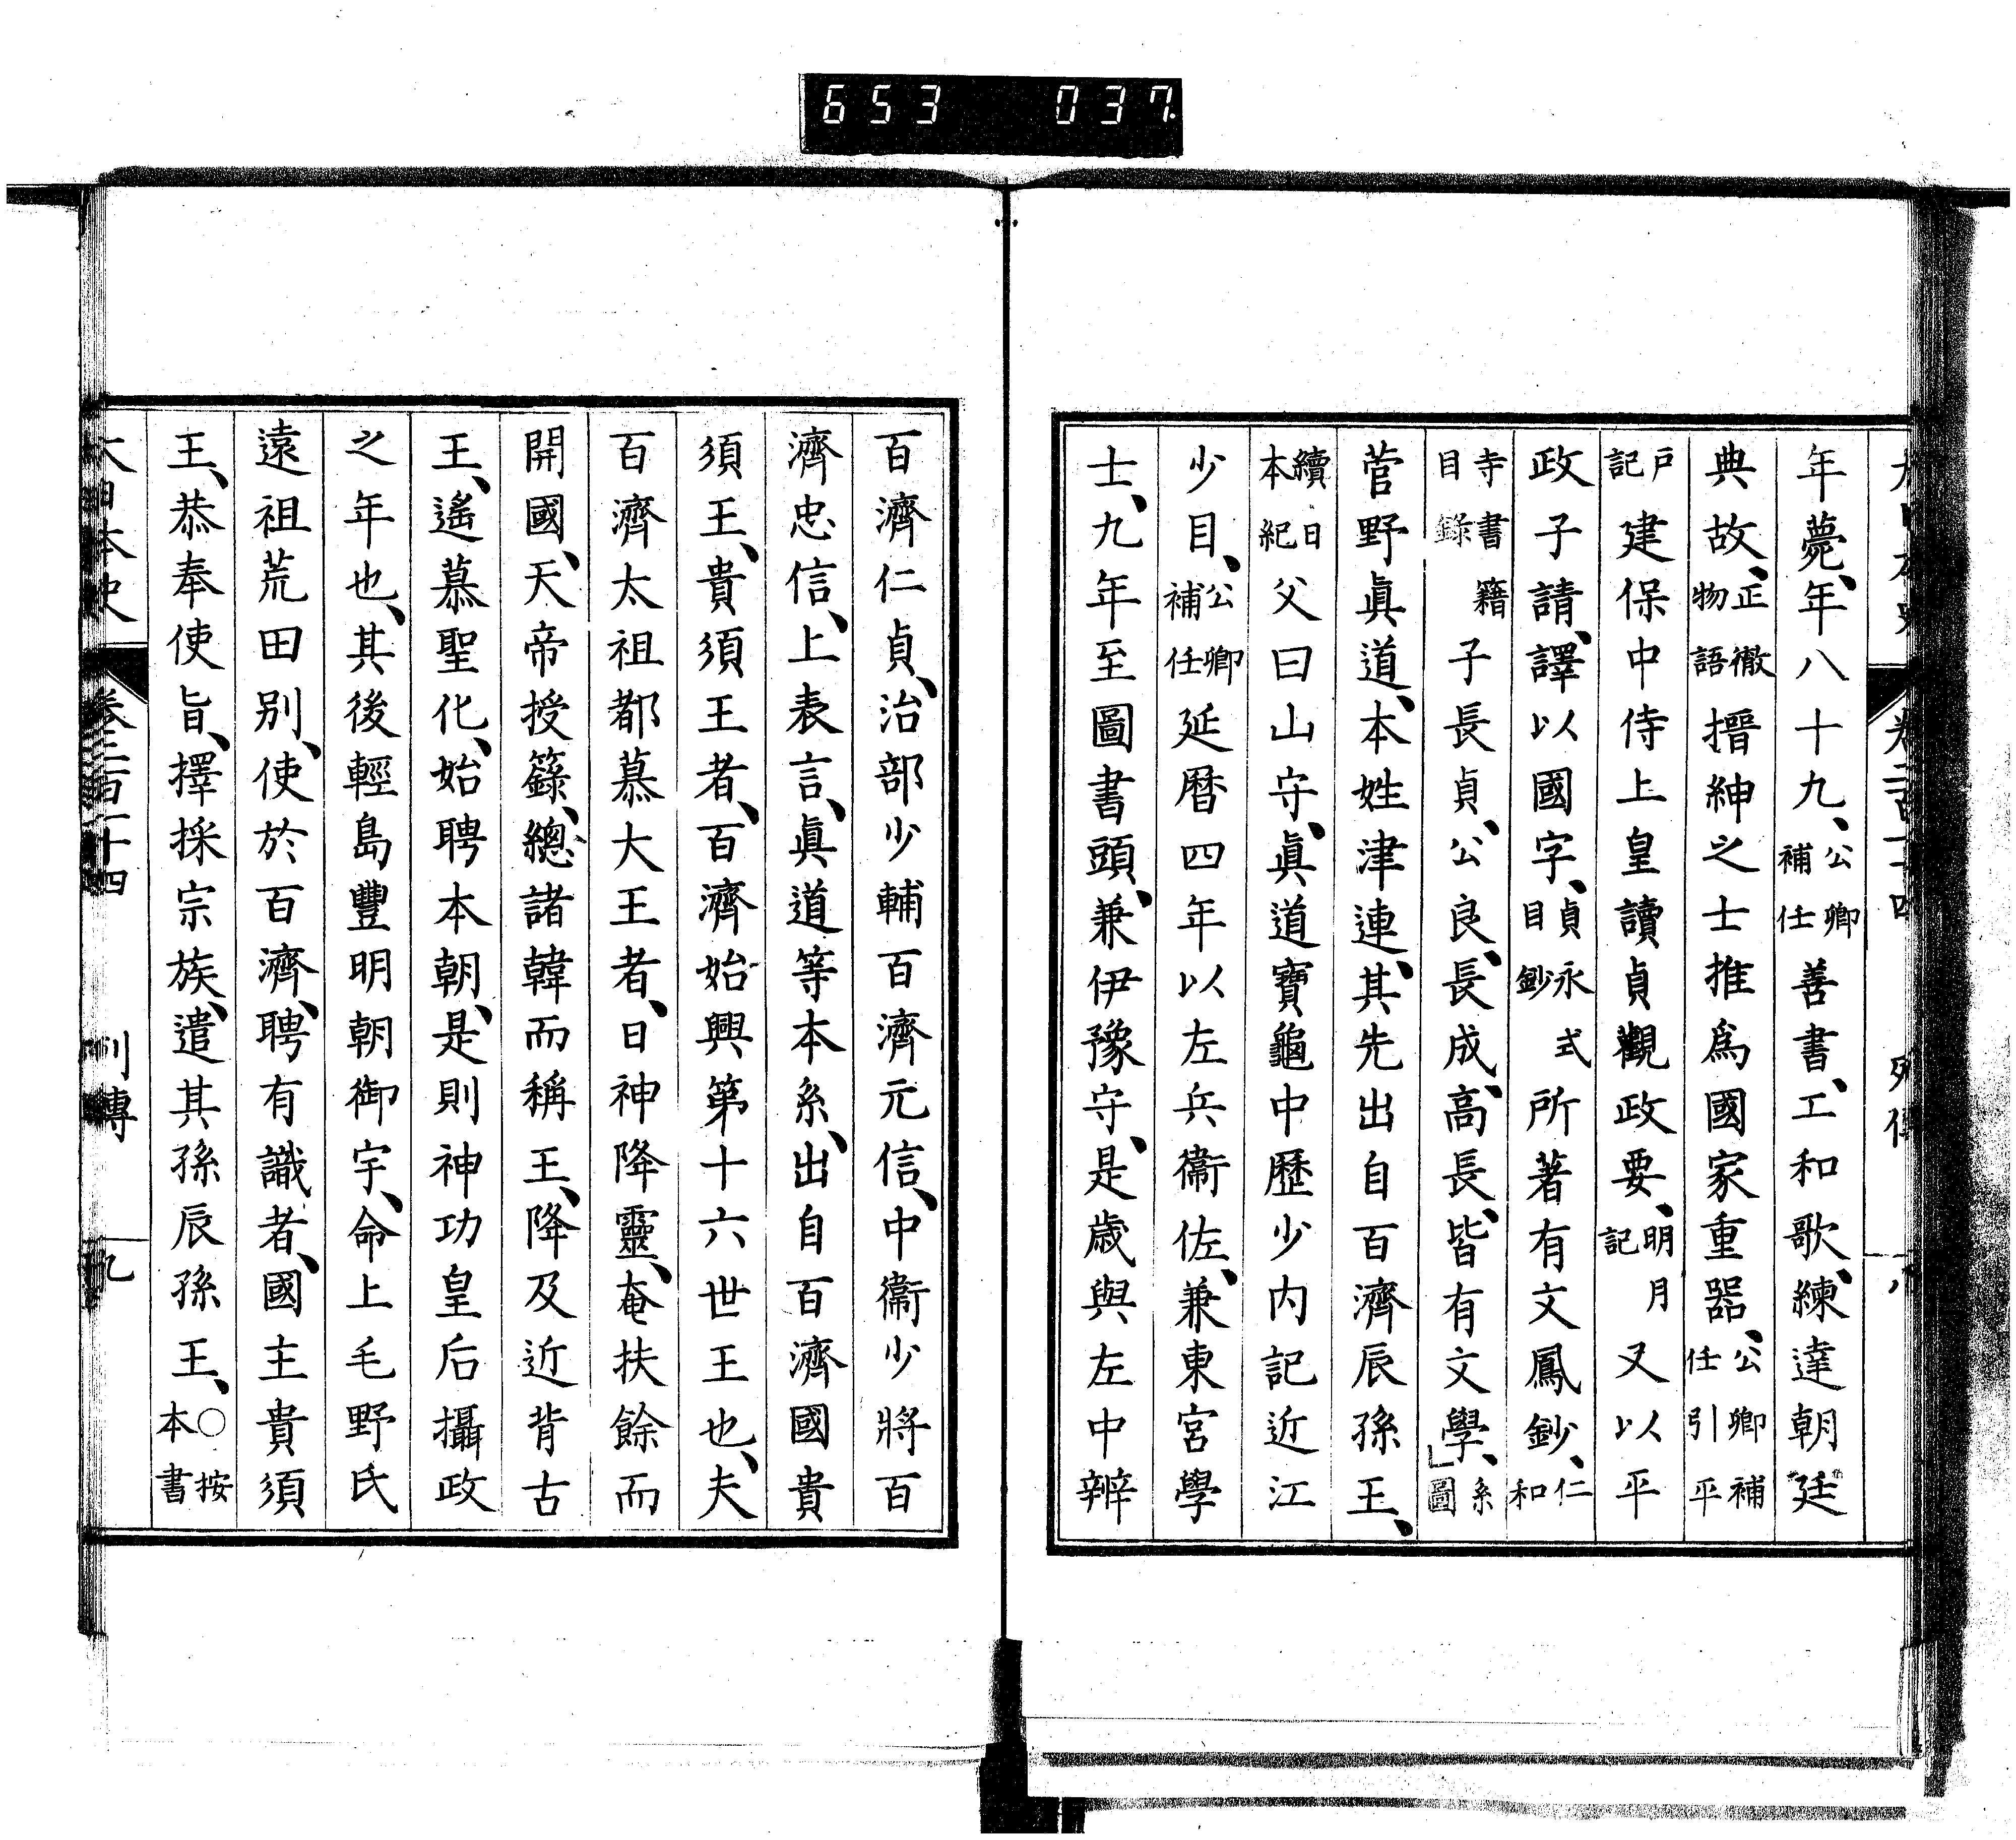 653 037
年薨、年八十九、公卿補任善書、工和歌、練達朝廷
典故、正徹物語搢紳之士推爲國家重器、公卿補任引平
戸記建保中侍上皇讀貞觀政要、明月記又以平
政子請、譯以國字、貞永式目鈔所著有文鳳鈔、仁和
寺書籍目錄子長貞、公良、長成、高長、皆有文學、系圖
菅野眞道、本姓津連、其先出自百濟辰孫王、
續日本紀父曰山守、眞道寶龜中歷少內記近江
少目、公卿補任延暦四年以左兵衞佐、兼東宮學
士、九年至圖書頭、兼伊豫守、是歳與左中辨
百濟仁貞、治部少輔百濟元信、中衞少將百
濟忠信、上表言、眞道等本系、出自百濟國貴
須王、貴須王者、百濟始興第十六世王也、夫
百濟太祖都慕大王者、日神降靈、奄扶餘而
開國、天帝授籙、總諸韓而稱王、降及近肖古
王、遙慕聖化、始聘本朝、是則神功皇后攝政
之年也、其後輕島豐明朝御宇、命上毛野氏
遠祖荒田別、使於百濟、聘有識者、國主貴須
王、恭奉使旨、擇採宗族、遣其孫辰孫王、○按本書
大日本史 卷二百十四 列傳 九